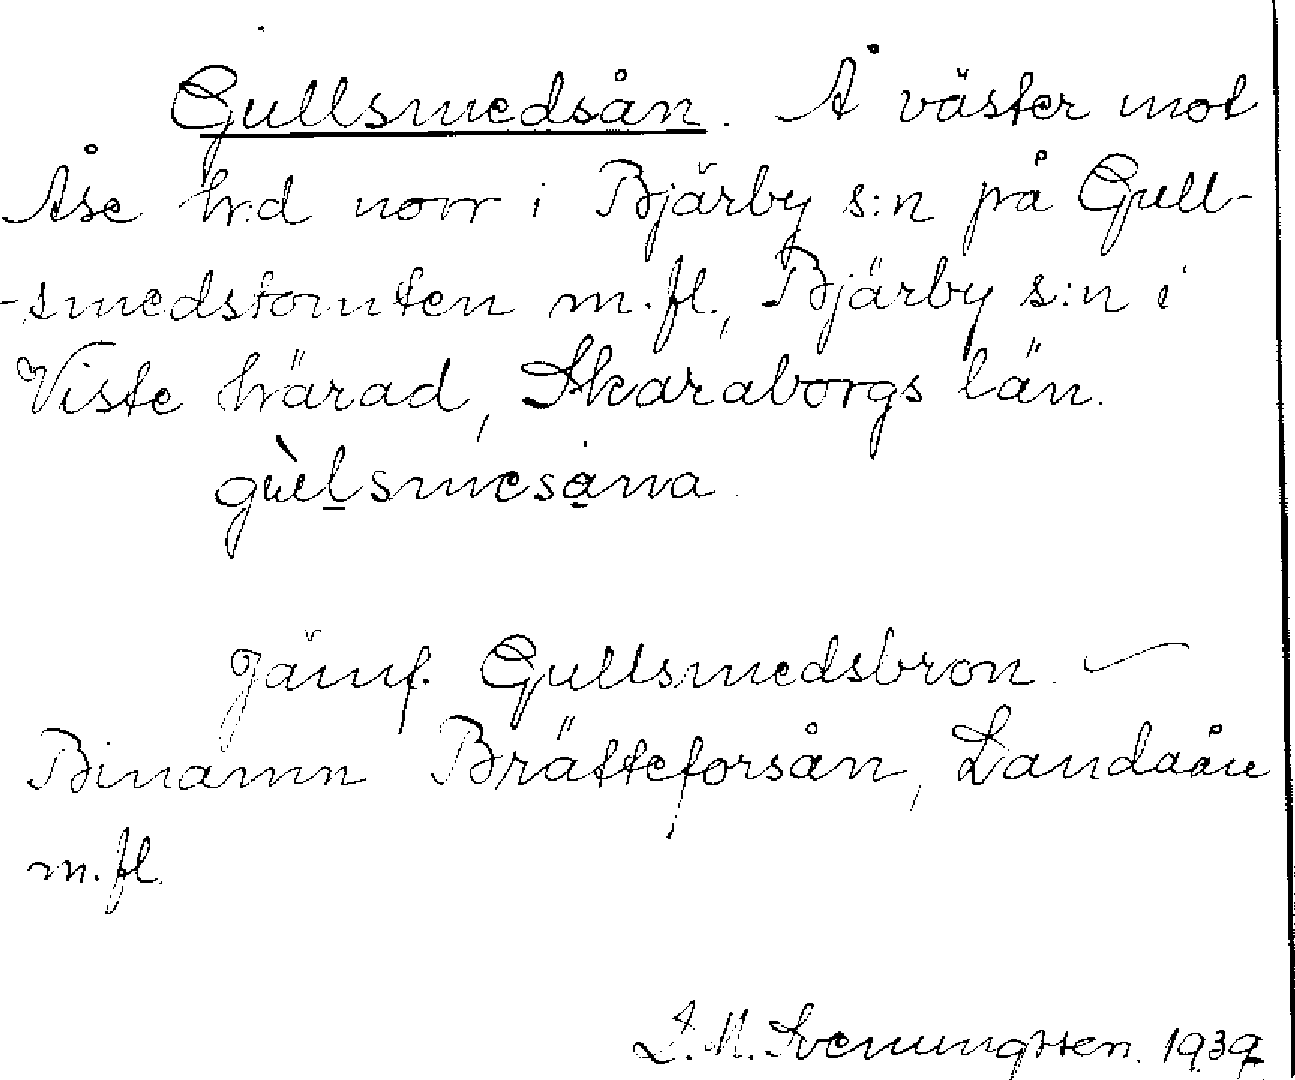 Gullsmedsån. Å väster mot
Åse h:d norr i Bjärby s:n på Gull-
-smedstomten m.fl., Bjärby s:n i
Viste härad, Skaraborgs län.
gùlsmesåna.
Jämf. Gullsmedsbron.
Binamn Brätteforsån, Landaån
m.fl.
I. M. Svenungsson. 1939